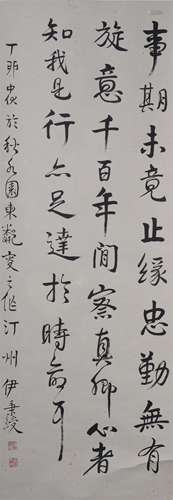 事期未竟止緣忠勤無有
旋意千百年間察真卿心者
知我是行亦足達於時命耳
丁卯中秋於秋水園東㼜雙之作汀州伊秉綬